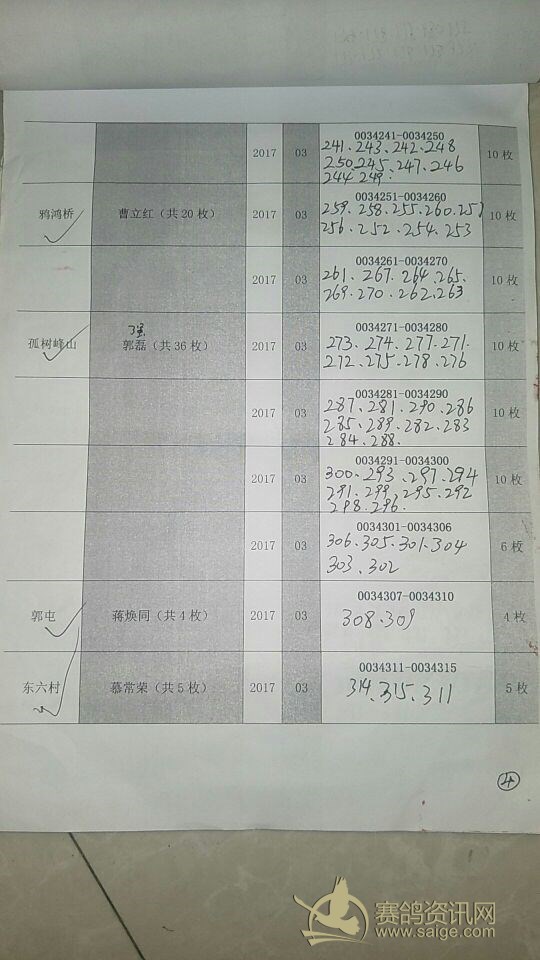 0034241-0034250
2017 03 241、243、242、248 10枚
250、245、247、246
244 249.
0034251-0034260
鸦鸿桥 曹立红（共20枚） 2017 03 259、258、255、260、257 10枚
256、252、254、253
0034261-0034270
2017 03 261、267、264、265、 10枚
269、270、262、263
0034271-0034280
孤树峰山 郭磊（共36枚） 2017 03 273、274、277、271、 10枚
272、275、278、276
0034281-0034290
2017 03 287、281、290、286 10枚
285、289、282、283
284、288.
0034291-0034300
2017 03 300、293、297、294 10枚
291、299、295、292
298、296.
0034301-0034306
2017 03 306、305、301、304 6枚
303、302
0034307-0034310
郭屯 蒋焕同（共4枚） 2017 03 308、309 4枚
0034311-0034315
东六村 慕常荣（共5枚） 2017 03 314、315、311 5枚
4
赛鸽资讯网
www.saige.com